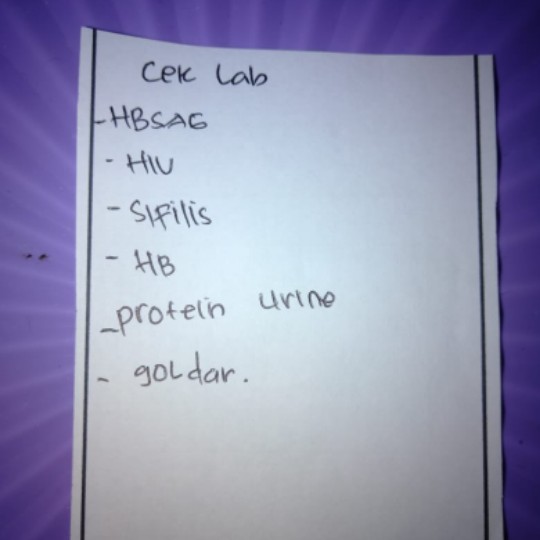 Cek Lab
- HBSAG
- HIV
- Sifilis
- HB
- protein urine
- goldar.